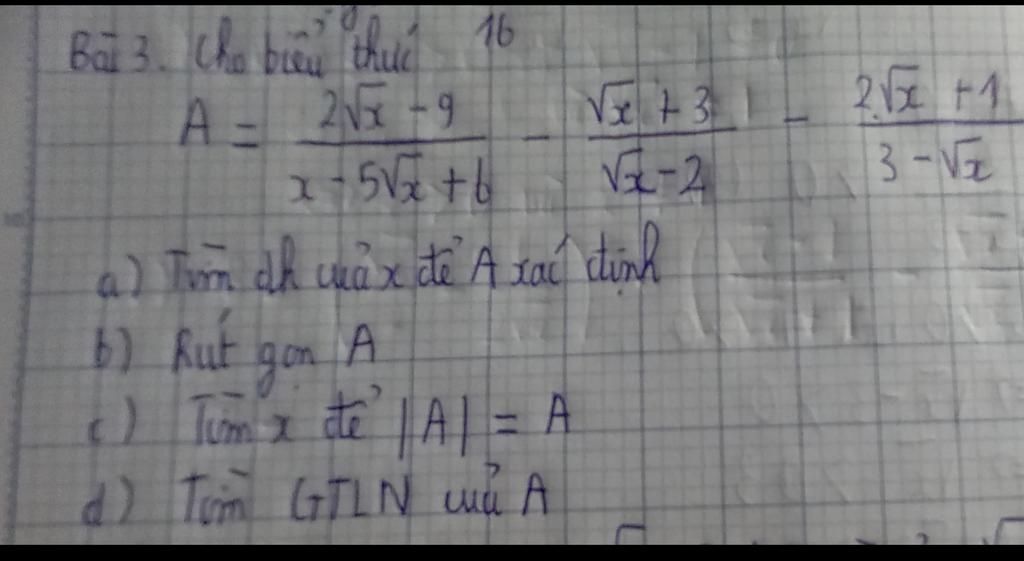 16
Bài 3. Cho biểu thức
A = \frac{2\sqrt{x} - 9}{x - 5\sqrt{x} + 6} - \frac{\sqrt{x} + 3}{\sqrt{x} - 2} - \frac{2\sqrt{x} + 1}{3 - \sqrt{x}}
a) Tìm đk của x để A xác định
b) Rút gọn A
c) Tìm x để |A| = A
d) Tìm GTLN của A